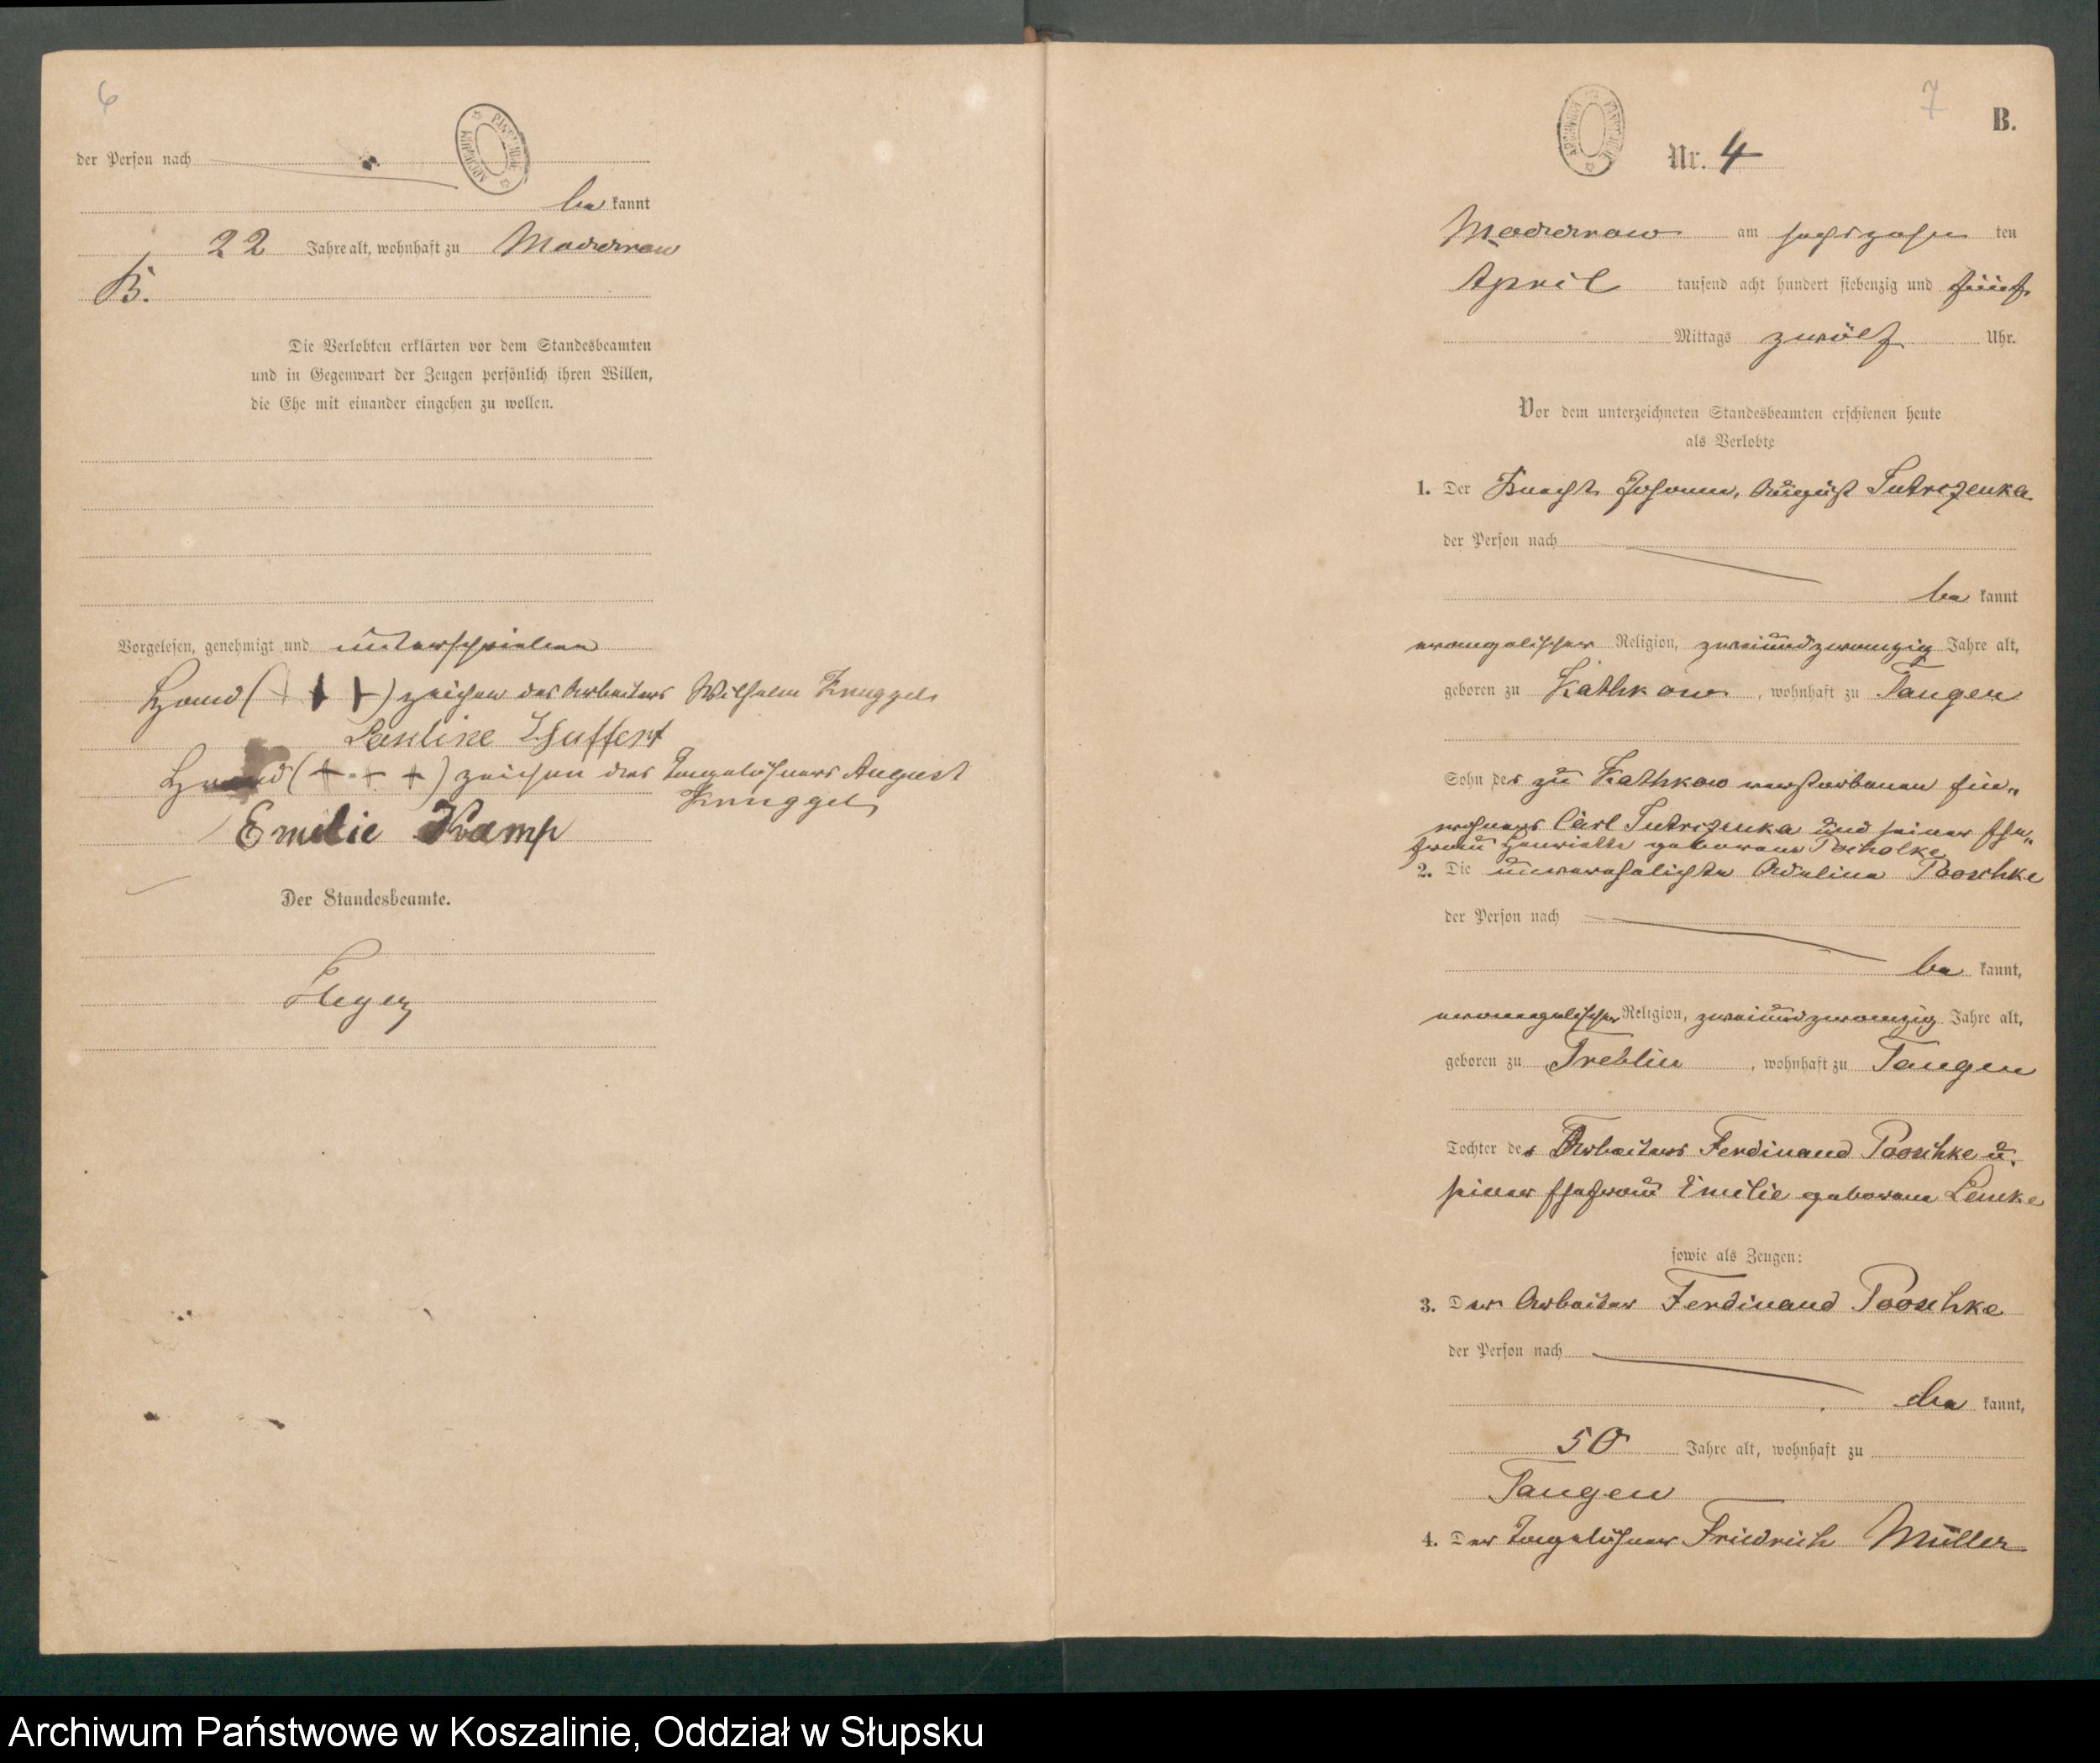 6
der Person nach
be kannt
22 Jahre alt, wohnhaft zu Moddrow
B.
Die Verlobten erklärten vor dem Standesbeamten
und in Gegenwart der Zeugen persönlich ihren Willen,
die Ehe mit einander eingehen zu wollen.
Vorgelesen, genehmigt und unterschrieben
Hand (+ + +) zeichen des Arbeiters Wilhelm Knuggel
Pauline
Hand (+ + +) zeichen des Tagelöhners August
Knuggel
Emilie Kamp
Der Standesbeamte.
7
B.
ARCHIWUM PAŃSTWOWE
Nr. 4
Moddrow am sechszehn ten
April tausend acht hundert siebenzig und fünf
Mittags zwölf Uhr.
Vor dem unterzeichneten Standesbeamten erschienen heute
als Verlobte
1. Der Knecht Johann, August Sutrszenka
der Person nach
be kannt
evangelischer Religion, zweiundzwanzig Jahre alt,
geboren zu Kathkow, wohnhaft zu Tangen
Sohn des zu Kathkow verstorbenen Ein-
wohners Carl Sutrszenka und seiner Ehe-
frau Henriette geborene
2. Die unverehelichte Adeline Pooschke
der Person nach
be kannt,
evangelischer Religion, zweiundzwanzig Jahre alt,
geboren zu Treblin, wohnhaft zu Tangen
Tochter des Arbeiters Ferdinand Pooschke u.
seiner Ehefrau Emilie geborene Lemke
sowie als Zeugen:
3. Der Arbeiter Ferdinand Pooschke
der Person nach
be kannt,
50 Jahre alt, wohnhaft zu
Tangen
4. Der Tagelöhner Friedrich Müller
Archiwum Państwowe w Koszalinie, Oddział w Słupsku